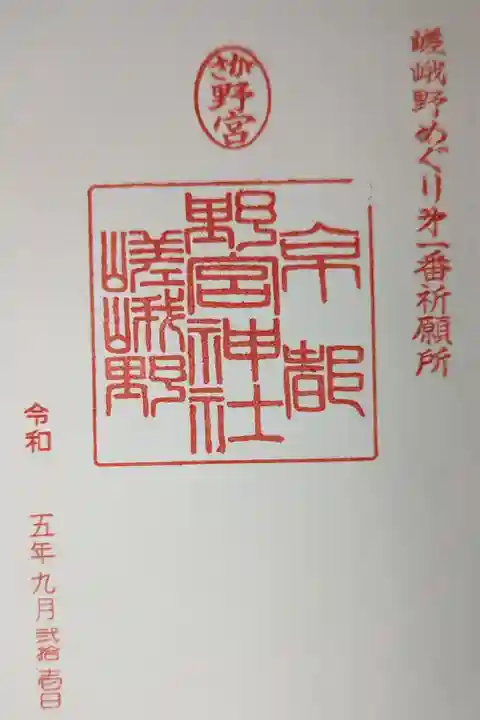 嵯峨野めぐり第一番祈願所
さが
野宮
京都
野宮神社
嵯峨野
令和 五年九月弐拾壱日